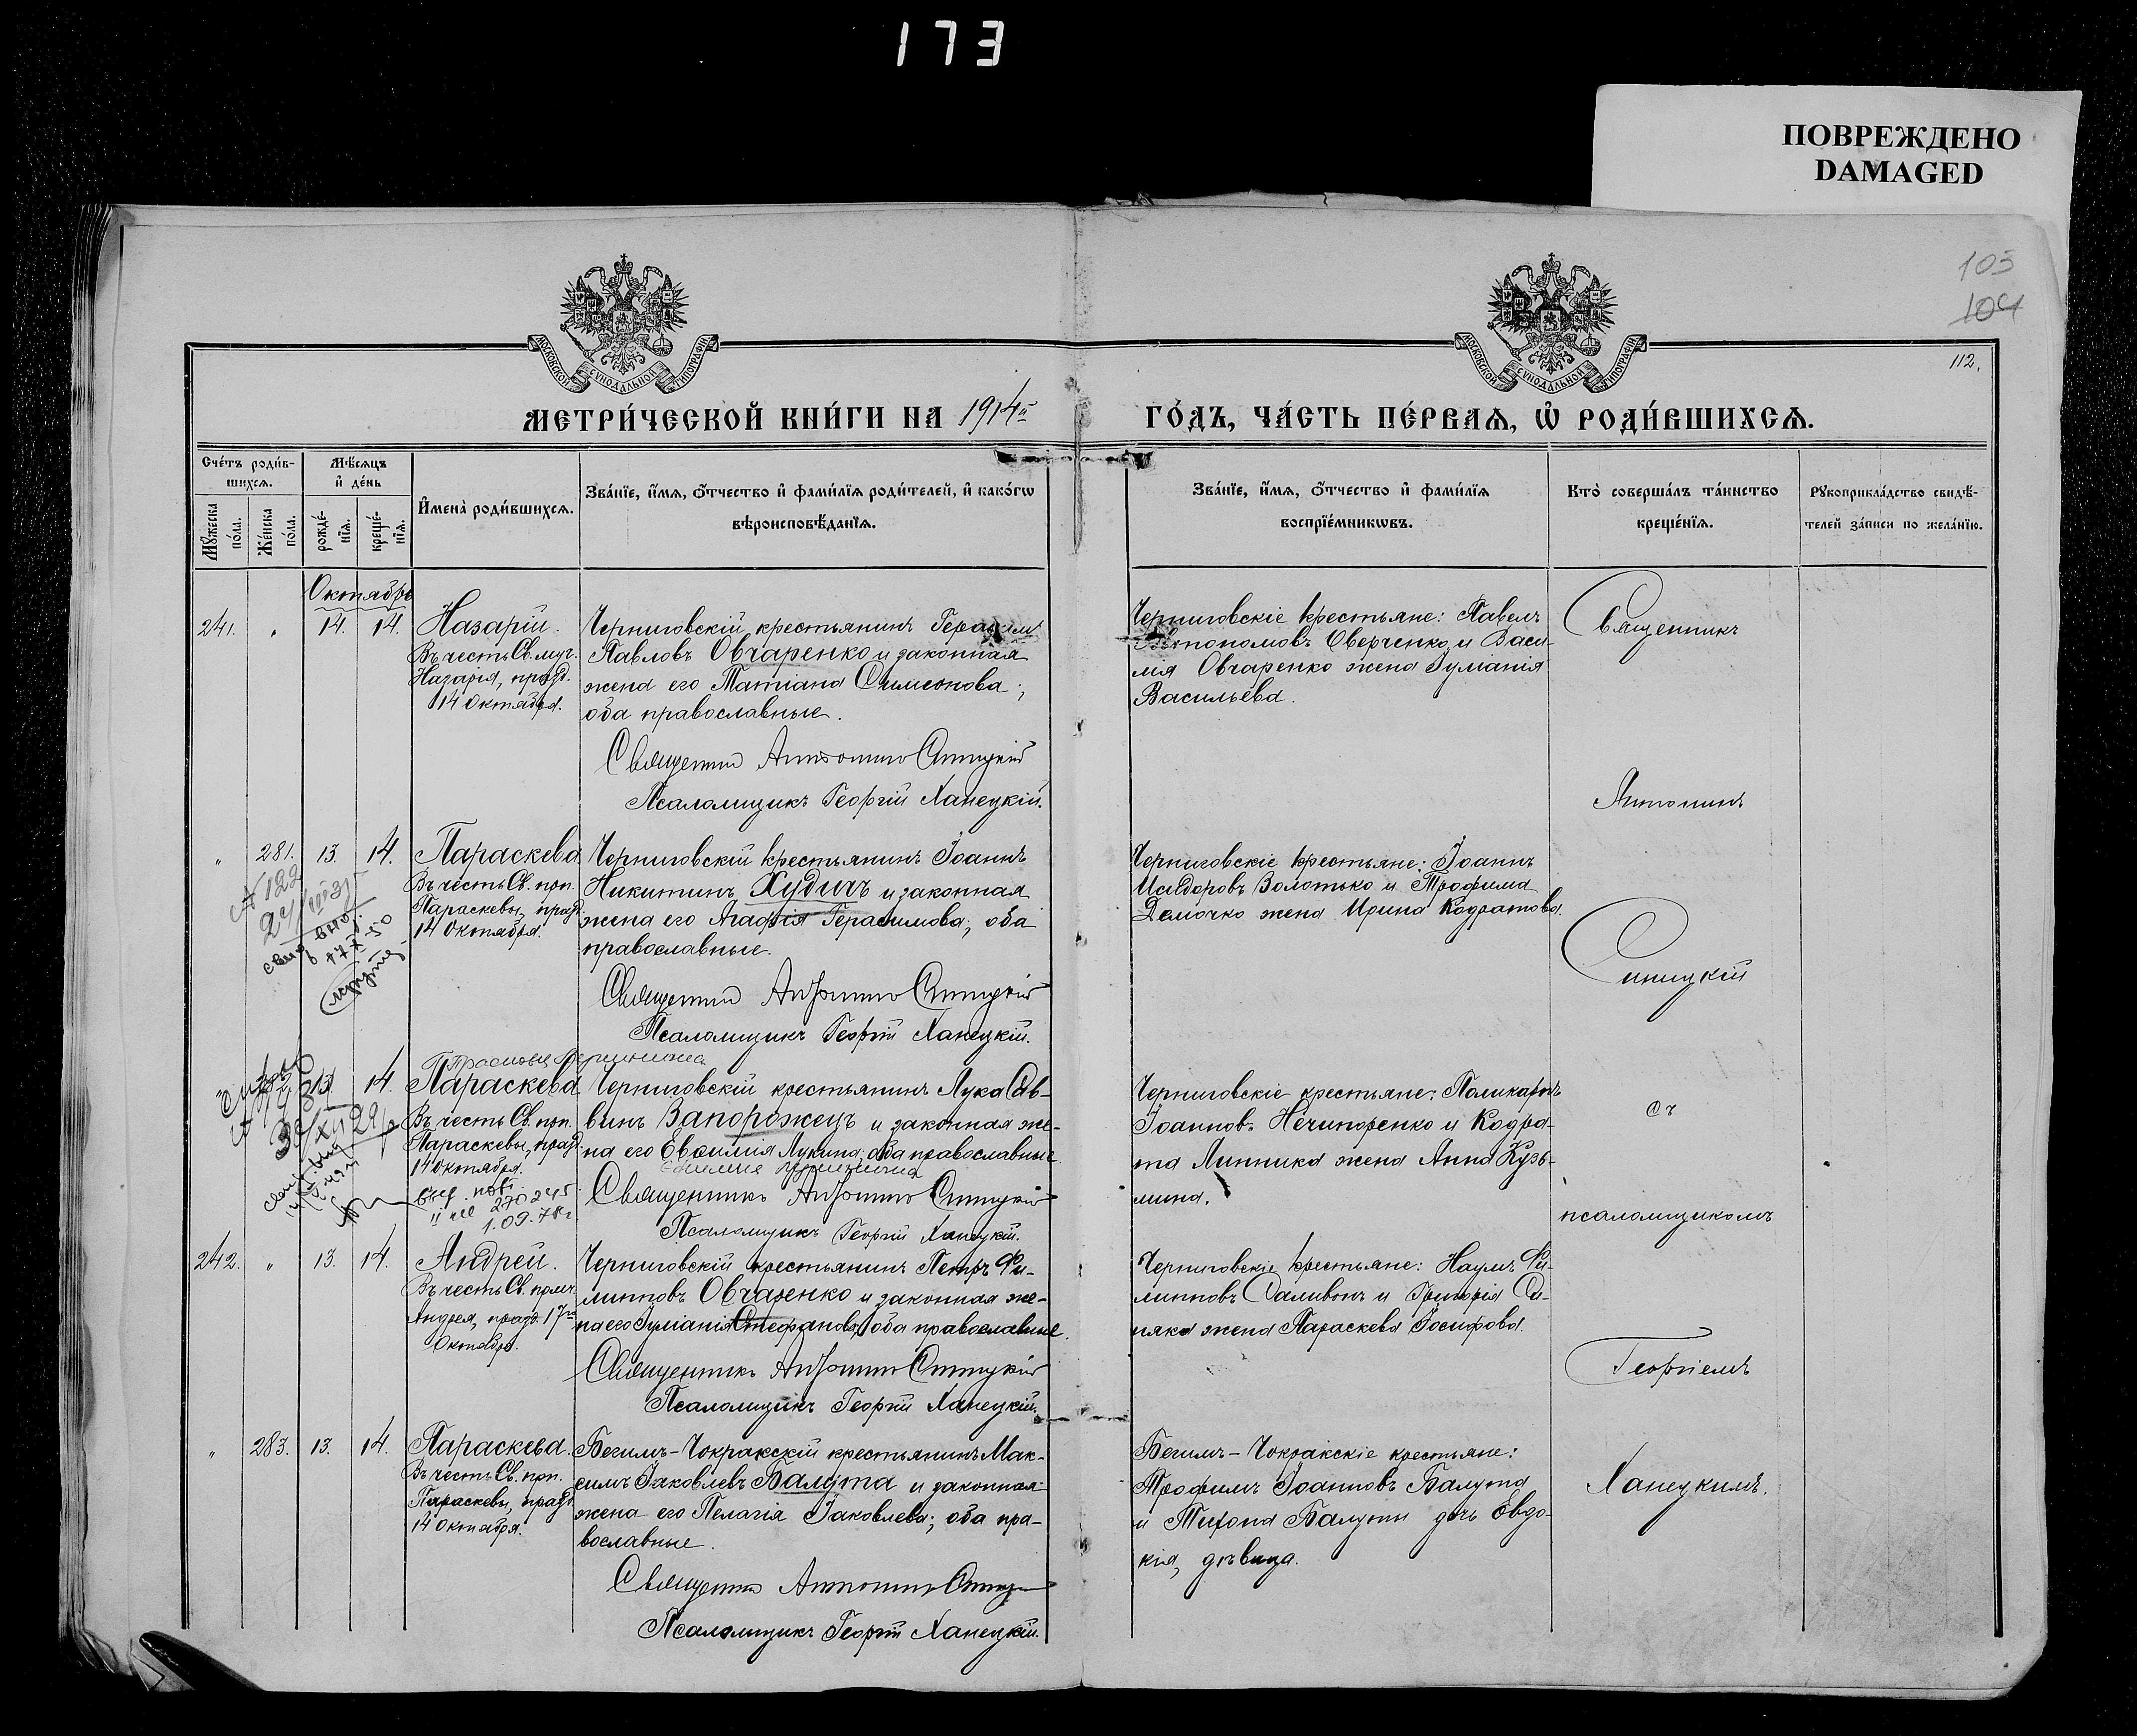 173
ПОВРЕЖДЕНО
DAMAGED
103
104
112.
МОСКОВСКОЙ СѴНОДАЛЬНОЙ ТИПОГРАФІИ
МОСКОВСКОЙ СѴНОДАЛЬНОЙ ТИПОГРАФІИ
МЕТРИ́ЧЕСКОЙ КНИ́ГИ НА 1914й
ГО́ДЪ, ЧА́СТЬ ПЕ́РВАѦ, Ѽ РОДИ́ВШИХСѦ.
Сче́тъ роди́в-
шихсѧ.
Мꙋжеска по́ла.
Же́нска по́ла.
Мѣ́сѧцъ
и҆ де́нь
рожде́-
нїѧ.
креще́-
нїѧ.
И҆мена̀ роди́вшихсѧ.
Зва́нїе, и҆́мѧ, ѻ҆́тчество и҆ фами́лїѧ роди́телей, и҆ како́гѡ
вѣроисповѣ́данїѧ.
Зва́нїе, и҆́мѧ, ѻ҆́тчество и҆ фами́лїѧ
воспрїе́мникѡвъ.
Кто̀ соверша́лъ та́инство
креще́нїѧ.
Рꙋкоприкла́дство свидѣ́-
телей за́писи по жела́нїю.
Октябрь
241. " 14. 14. Назарій.
Въ честь Св. муч.
Назарія, празд.
14 Октября.
Черниговскій крестьянинъ Герасимъ
Павловъ Овчаренко и законная
жена его Татіана Симеонова;
оба православные.
Священникъ Антонинъ Синицкій
Псаломщикъ Георгій Ханецкій.
Черниговскіе крестьяне: Павелъ
Оверченко и Васи-
лія Овчаренко жена Іуліанія
Васильева.
Священникъ
Антонинъ
Синицкій
съ
псаломщикомъ
Георгіемъ
Ханецкимъ.
" 281. 13. 14. Параскева
Въ честь Св. прп.
Параскевы, празд.
14 Октября.
№ 122
Черниговскій крестьянинъ Іоаннъ
Никитинъ Худичъ и законная
жена его Агафія Герасимова; оба
православные.
Священникъ Антонинъ Синицкій
Псаломщикъ Георгій Ханецкій.
Черниговскіе крестьяне: Іоаннъ
Исидоровъ Золотько и Трофима
Демочко жена Ирина Кодратова.
13. 14. Параскева
Въ честь Св. прп.
Параскевы, празд.
14 Октября.
1.09.78г
Черниговскій крестьянинъ Лука Сав-
винъ Запорожецъ и законная же-
на его Евфимія Лукина; оба православные.
Священникъ Антонинъ Синицкій
Псаломщикъ Георгій Ханецкій.
Черниговскіе крестьяне: Поликарпъ
Іоанновъ Нечипоренко и Кодра-
та Линника жена Анна Кузь-
мина.
242. " 13. 14. Андрей.
Въ честь Св. прмч.
Андрея, празд. 17го
Октября.
Черниговскій крестьянинъ Петръ Фи-
липповъ Овчаренко и законная же-
на его Іуліанія Стефанова; оба православные.
Священникъ Антонинъ Синицкій
Псаломщикъ Георгій Ханецкій.
Черниговскіе крестьяне: Наумъ Фи-
липповъ Саливонъ и Григорія Си-
няка жена Параскева Іосифова.
" 283. 13. 14. Параскева.
Въ честь Св. прп.
Параскевы, празд.
14 Октября.
Бегимъ-Чокракскій крестьянинъ Мак-
симъ Іаковлевъ Балута и законная
жена его Пелагія Іаковлева; оба пра-
вославные.
Священникъ Антонинъ Синицкій
Псаломщикъ Георгій Ханецкій.
Бегимъ-Чокракскіе крестьяне:
Трофимъ Іоанновъ Балута
и Тихона Балуты дочь Евдо-
кія, дѣвица.